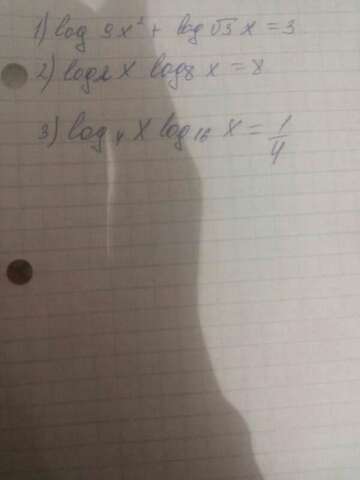 1) log 9 x² + log √3 x = 3
2) log₂ x log₈ x = 8
3) log₄ x log₁₆ x = 1/4